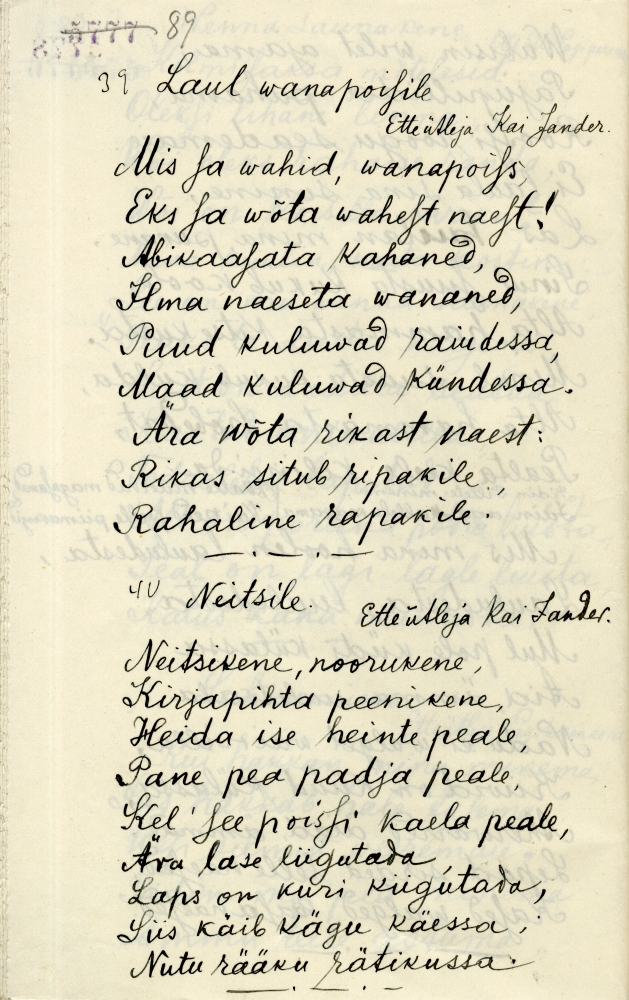 89
39 Laul wanapoisile
Etteütleja Kai Jander.
Mis sa wahid, wanapoiss,
Eks sa wõta wahest naest!
Abikaasata kahaned,
Ilma naeseta wananed,
Puud kuluwad raiudessa,
Maad kuluwad kündessa.
Ära wõta rikast naest:
Rikas situb ripakile,
Rahaline rapakile.
40 Neitsile.
Etteütleja Kai Jander.
Neitsikene, noorukene,
Kirjapihta peenikene,
Heida ise heinte peale,
Pane pea padja peale,
Kel' see poissi kaela peale,
Ära lase liigutada,
Laps on kuri kiigutada,
Siis käib kägu käessa,
Nutu rääku rätikussa.